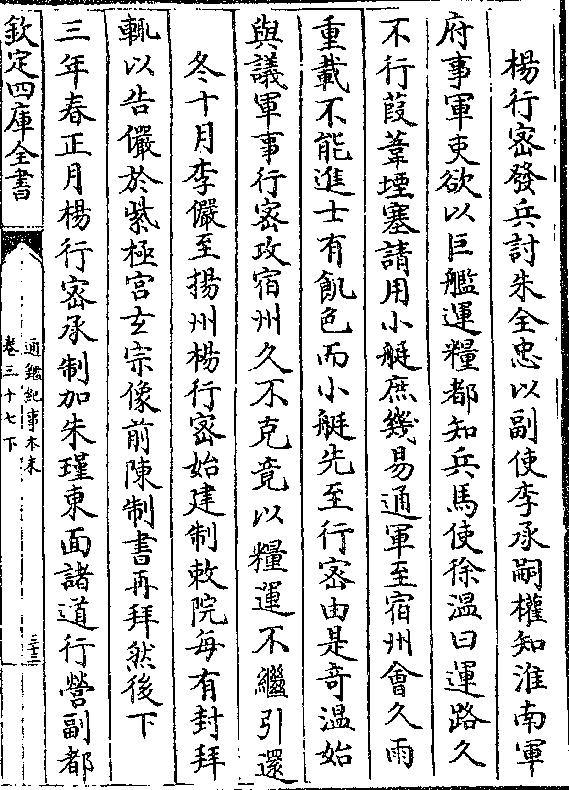 楊行密發兵討朱全忠以副使李承嗣權知淮南軍
府事軍吏欲以巨艦運糧都知兵馬使徐温曰運路久
不行葭葦堙塞請用小艇庶幾易通軍至宿州會久雨
重載不能進士有飢色而小艇先至行密由是竒温始
與議軍事行密攻宿州久不克竟以糧運不繼引還
冬十月李儼至揚州楊行密始建制敕院每有封拜
輒以告儼於紫極宫玄宗像前陳制書再拜然後下
三年春正月楊行密承制加朱瑾東面諸道行營副都
欽定四庫全書
通鑑紀事本末
卷三十七下
三十三